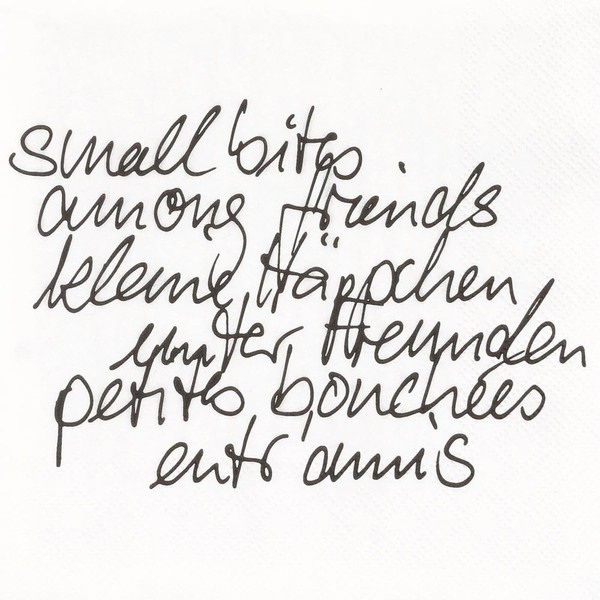 small bites
among friends
kleine Häppchen
unter Freunden
petites bouchées
entre amis